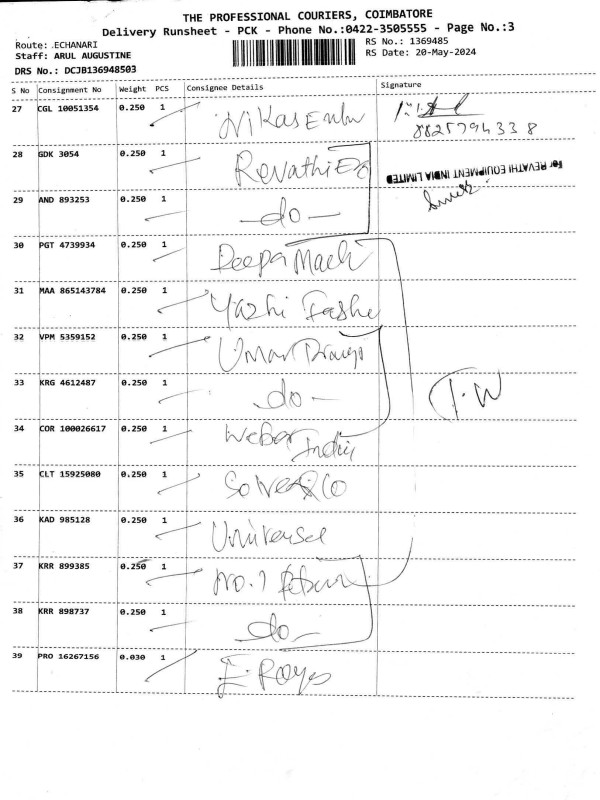 THE PROFESSIONAL COURIERS, COIMBATORE
Delivery Runsheet - PCK - Phone No.:0422-3505555 - Page No.:3
Route: .ECHANARI
RS No.: 1369485
Staff: ARUL AUGUSTINE
RS Date: 20-May-2024
DRS No.: DCJB136948503
S No Consignment No Weight PCS Consignee Details Signature
27 CGL 10051354 0.250 1
8825794338
28 GDK 3054 0.250 1 Revathi Eq
For REVATHI EQUIPMENT INDIA LIMITED
29 AND 893253 0.250 1 -do-
30 PGT 4739934 0.250 1 Deepa
31 MAA 865143784 0.250 1 Yazhi
32 VPM 5359152 0.250 1 Umar
33 KRG 4612487 0.250 1 do-
T.W
34 COR 100026617 0.250 1 Weber India
35 CLT 15925080 0.250 1
36 KAD 985128 0.250 1 Universal
37 KRR 899385 0.250 1 No.1
38 KRR 898737 0.250 1 do-
39 PRO 16267156 0.030 1